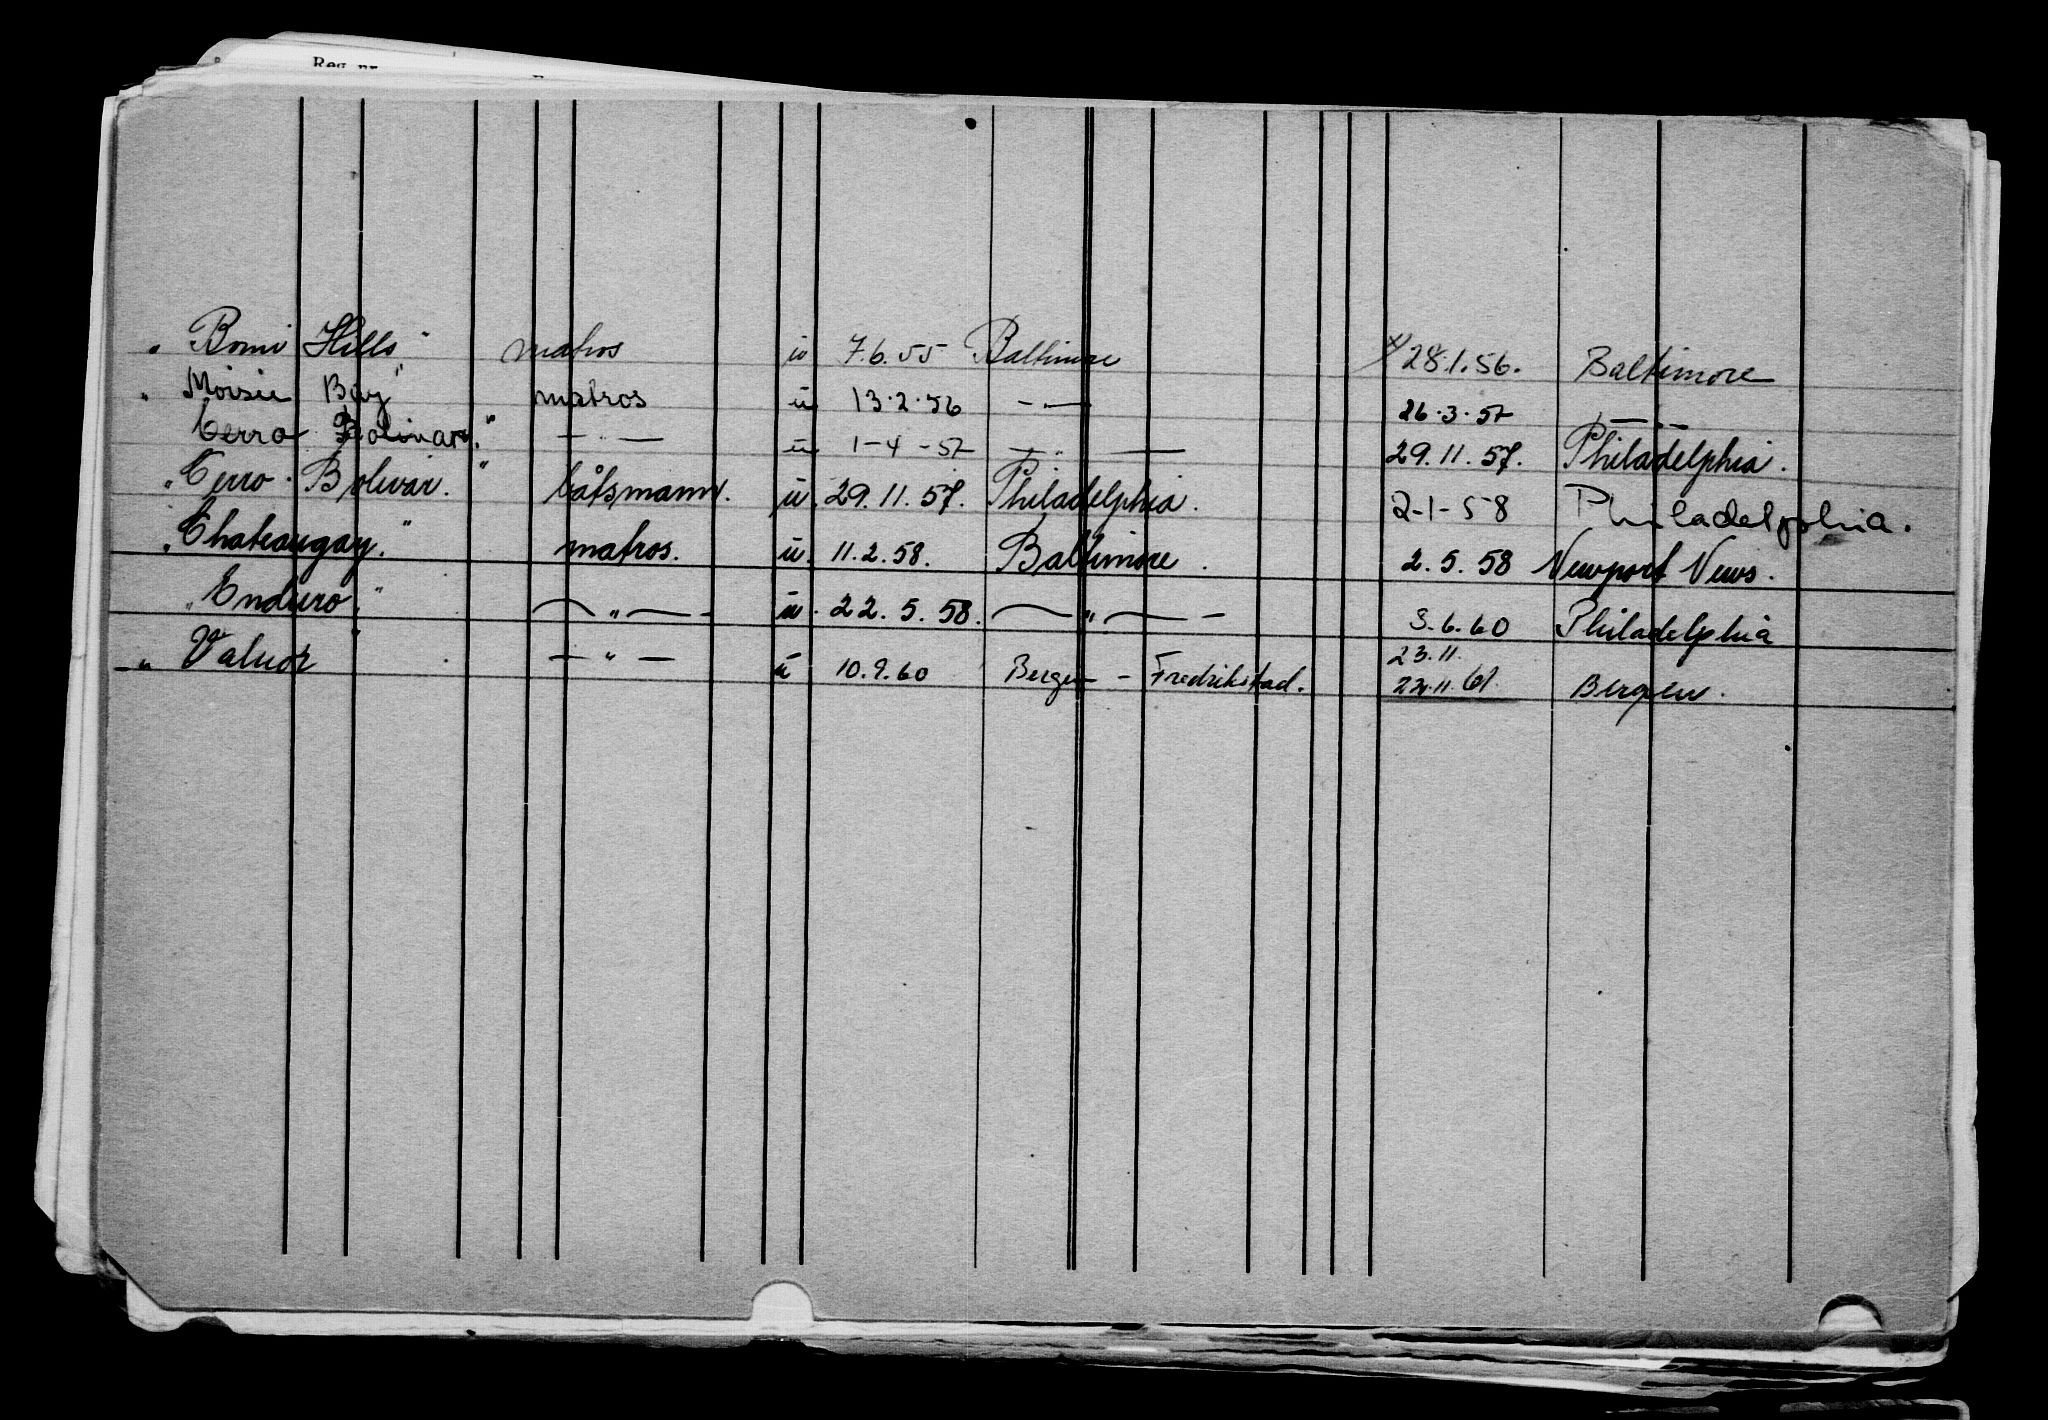 Reg. nr.
" Bomi Hills" matros u 7.6.55 Baltimore x/ 28.1.56. Baltimore
" Moisie Bay" matros u 13.2.56 - — 26.3.57 — - -
Cerro Bolivar." — " — u 1-4-57 — " — 29.11.57. Philadelphia.
" Cerro Bolivar." båtsmann. u. 29.11.57. Philadelphia. 2-1-58 Philadelphia.
" Chateaugay." matros. u. 11.2.58. Baltimore. 2.5.58 Newport News.
" Enduro." — " — u. 22.5.58. — " — 3.6.60 Philadelphia
23.11.
—" Valuor — " — u 10.9.60 Bergen - Fredrikstad. 22.11.61. Bergen.